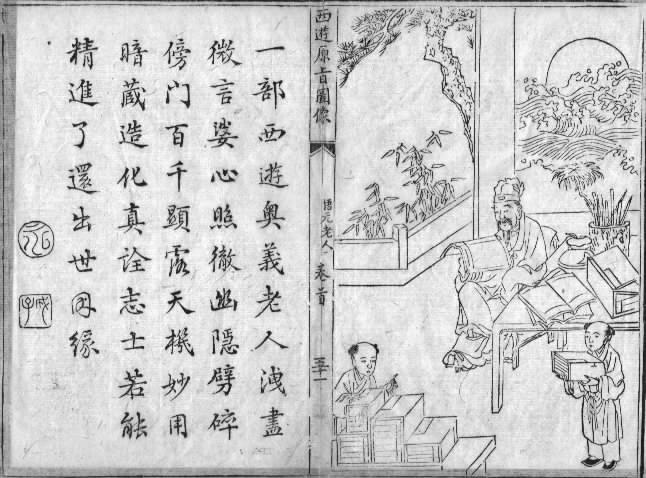 西遊原旨圖像
悟元老人
卷首
一部西遊奧義老人洩盡
微言婆心照徹幽隱劈碎
傍门百千顕露天機妙用
暗蔵造化真詮志士若能
精進了還出世因緣